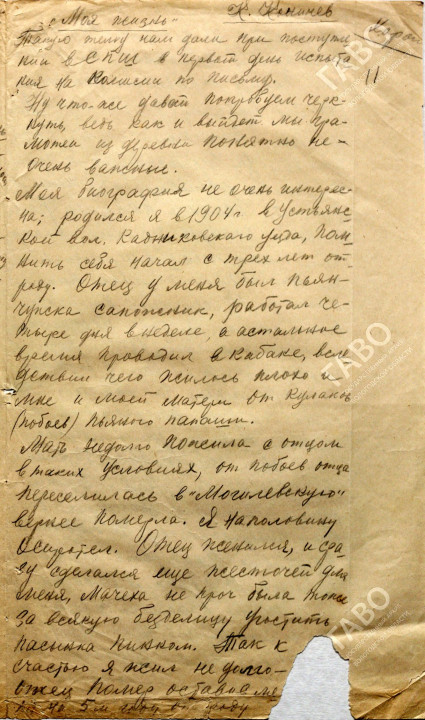 К. Коничев
"Моя жизнь"
11
Такую тему нам дали при поступле
нии в СПШ в первый день испыта
ния на Комиссии по письму.
Ну что-же давай попробуем черк-
нуть, ведь как и выйдет мы гра-
мотеи из деревни понятно не-
очень важные.
Моя биография не очень интерес-
на; родился я в 1904 г в Устьянс-
кой вол. Кадниковского уезда, пом-
нить себя начал с трех лет от
роду. Отец у меня был пьян-
чушка сапожник, работал че-
тыре дня в неделе, а астальное
время проводил в кабаке, всле
дствии чего жилось плохо и
мне и моей матери от кулаков
(побоев) пьяного папаши.
Мать недолго пожила с отцом
в таких условиях, от побоев отца
переселилась в "Могилевскую"
вернее померла. Я наполовину
осиротел. Отец женился, и сра-
зу сделался еще жесточей для
меня, Мачеха не проч была тоже
за всякую безделицу угостить
пасынка пинком. Так к
счастью я жил не долго-
отец помер оставив ме
на 5 м году от роду
ГАВО
ГАВО
ГАВО
ГАВО